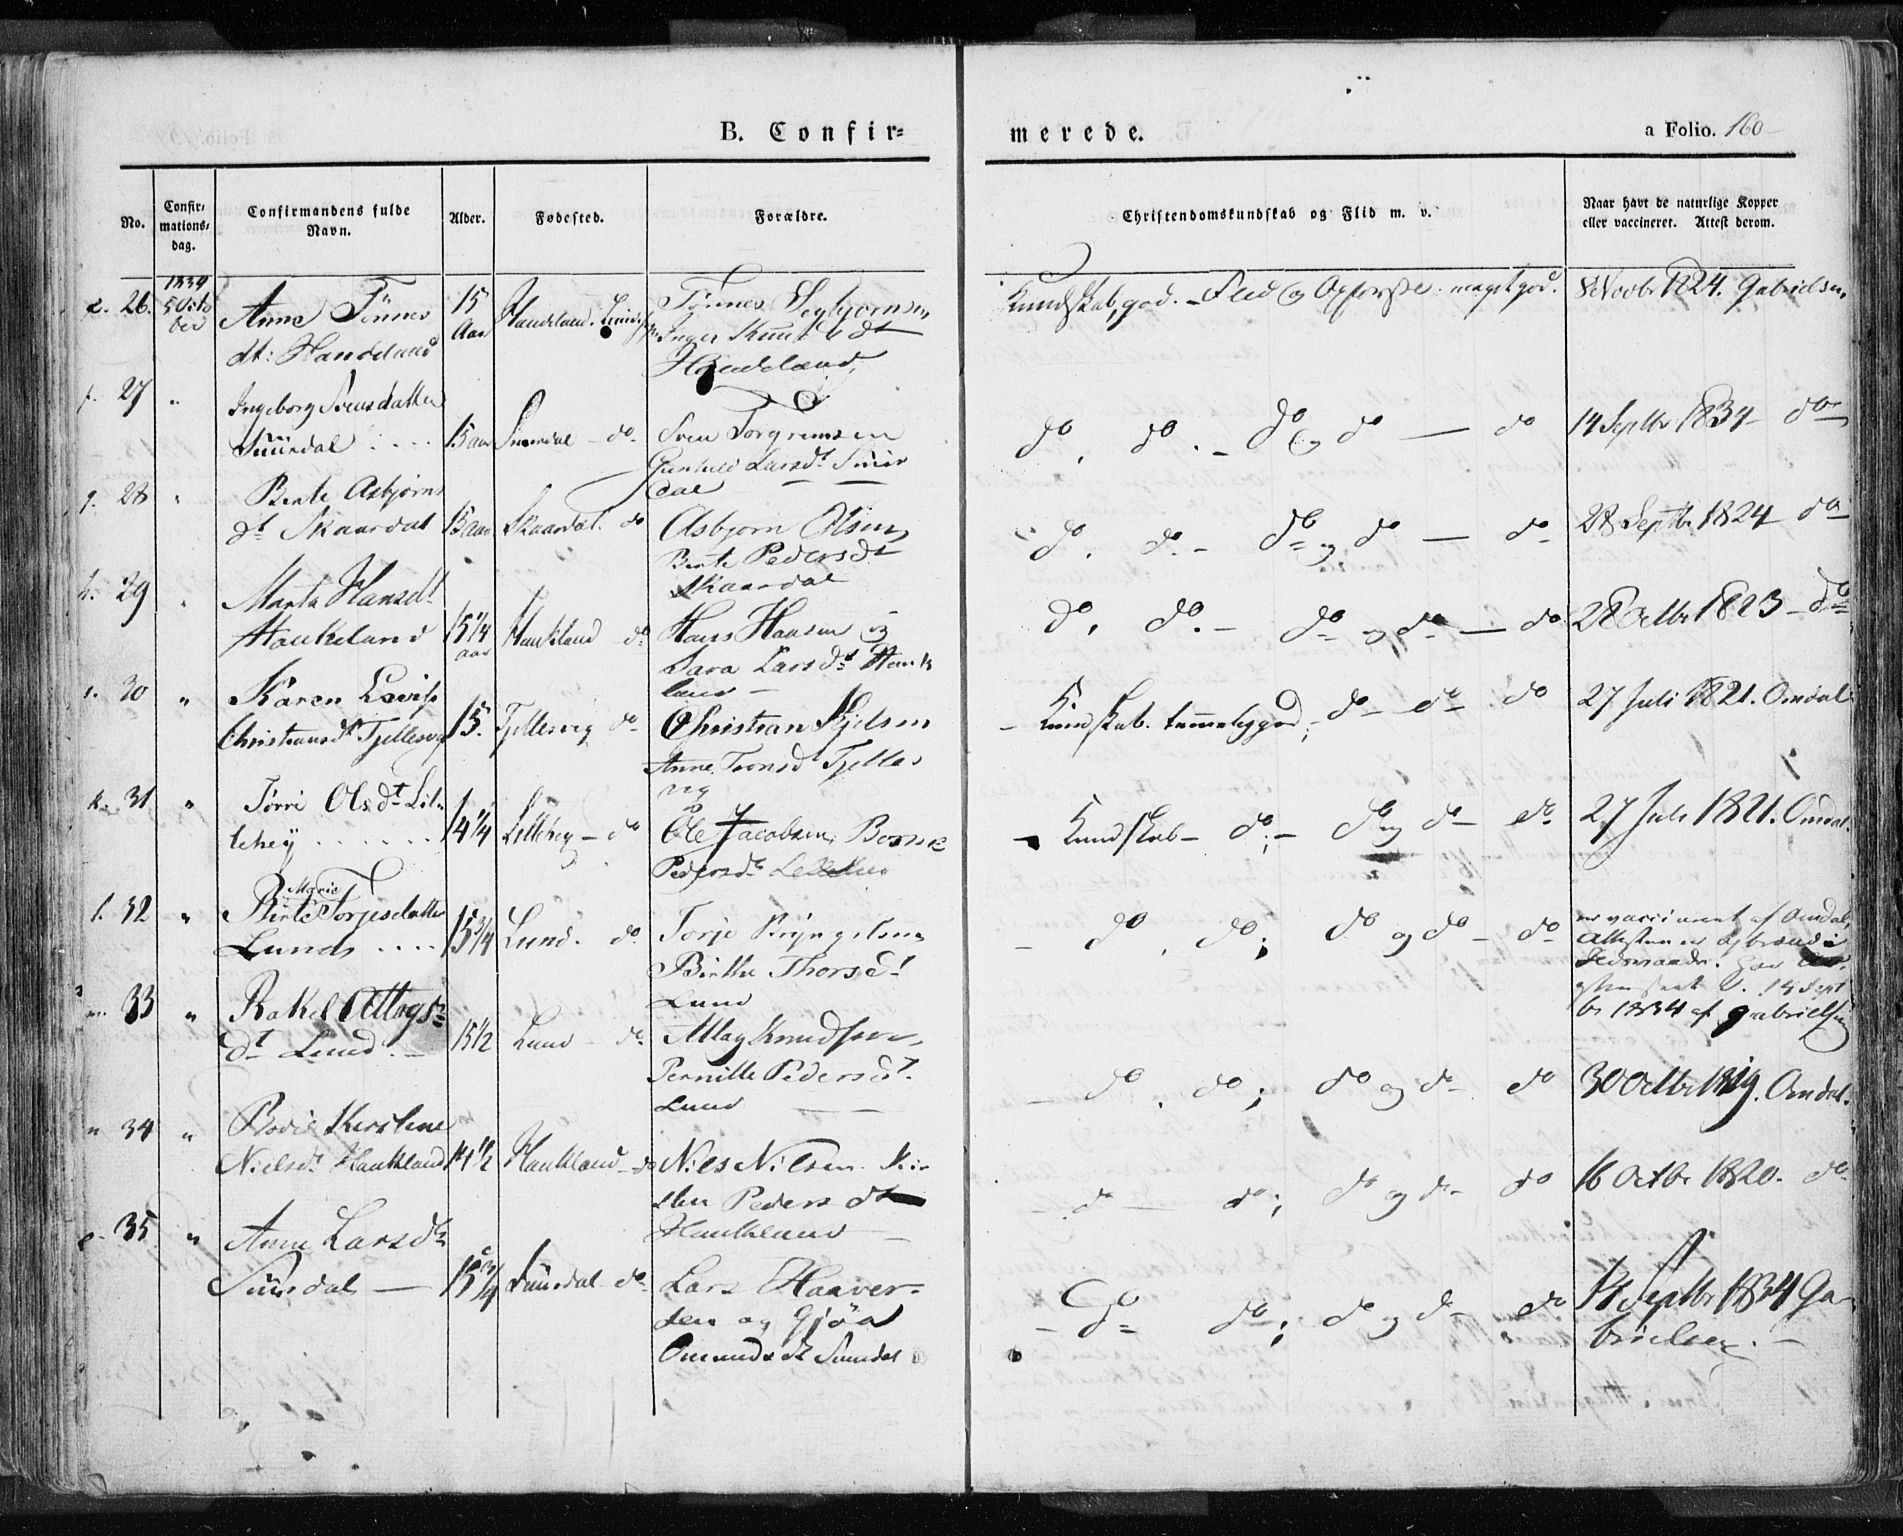 B. Confirmerede.
a Folio. 160
No.
Confirmationsdag.
Confirmandens fulde Navn.
Alder.
Fødested.
Forældre.
Christendomskundskab og Flid m. v.
Naar havt de naturlige Kopper eller vaccineret. Attest derom.
e. 26. 1834 5 October Anna Tönnesdt: Haukland 15 Aar Haukland. Tönnes Inger Knutsdt Haukland,
Kundskab, god. – Flid og Opførsel meget god. 8 Novbr 1824. Gabrielsen
f. 27 " Ingeborg Svensdatter Suursdal .... 15 aar Suursdal – do Sven Torgrimsen Gunhild Larsdt Suursdal
do, do. – do og do — do 14 Septbr 1834 do
g. 28 " Bente Asbjørnsdt Skaardal 15 aar Skaardal. do Asbjørn Olsen Bente Pedersdt Skaardal
do. do. – do og do — do 28 Septbr 1824 do
h. 29 " Marta Hansdt Haukeland 15 1/4 aar Haukland do Hans Hansen og Sara Larsdt Haukland –
do, do. – do og do — do 28 Octbr 1823 – do
i. 30 " Karen Lovise Christiansdt Tjellesvig 15. Tjellesvig do Christian Anne Tronsdt Tjellesvig
– Kundskab temmelig god; do – do. do 27 Juli 1821. Omdal
k. 31 " Olsdt Lillehey ...... 14 1/4 Lillehey – do Ole Jacobsen, Pedersdt Lillehey
– Kundskab – do; – do og do – do 27 Juli 1821. Omdal.
l. 32 " Birte Marie Torjesdatter Lunds .... 15 3/4 Lund. do Torje Bryngelsen Birthe Thorsdt Lund
– do, do; do og do – do er vaccineret af Omdal, Attesten er 14 Septbr 1834 af Gabrielsen
m. 33 " Rakel Atlagsdt Lund. – 15 1/2 Lund – do Atlag Knudsen, Pernille Pedersdt. Lund — —
– do. do; do og do – do 30 Octbr 1819. Omdal.
n 34 " Bodil Kirstine Nielsdt Haukland 14 1/2 Haukland – do Nils Nilsen. Kirsten Pedersdt Haukland —
– do – do; do og do – do 16 Octbr 1820. do
o. 35 " Anne Larsdt Suursdal — 15 3/4 Suursdal do Lars og Gjøa Omundsdt Suursdal
– do do; do og do – do 14 Septbr 1834 Gabrielsen. –